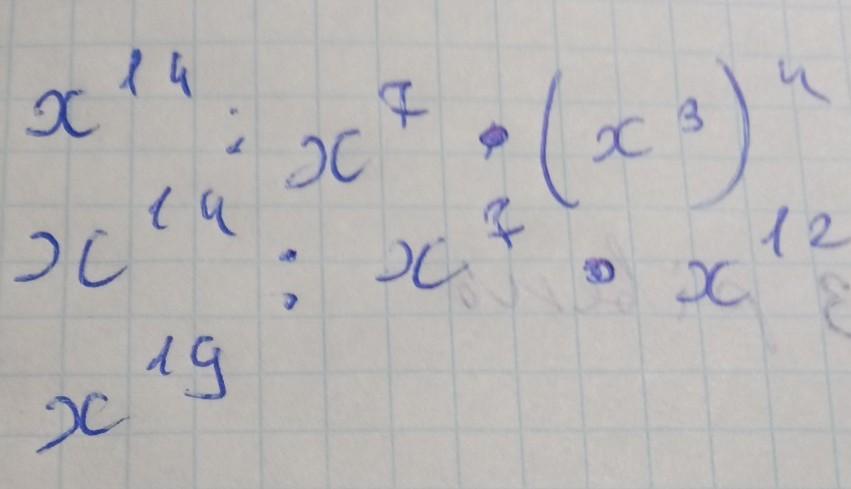 x¹⁴ : x⁷ · (x³)⁴
x¹⁴ : x⁷ · x¹²
x¹⁹